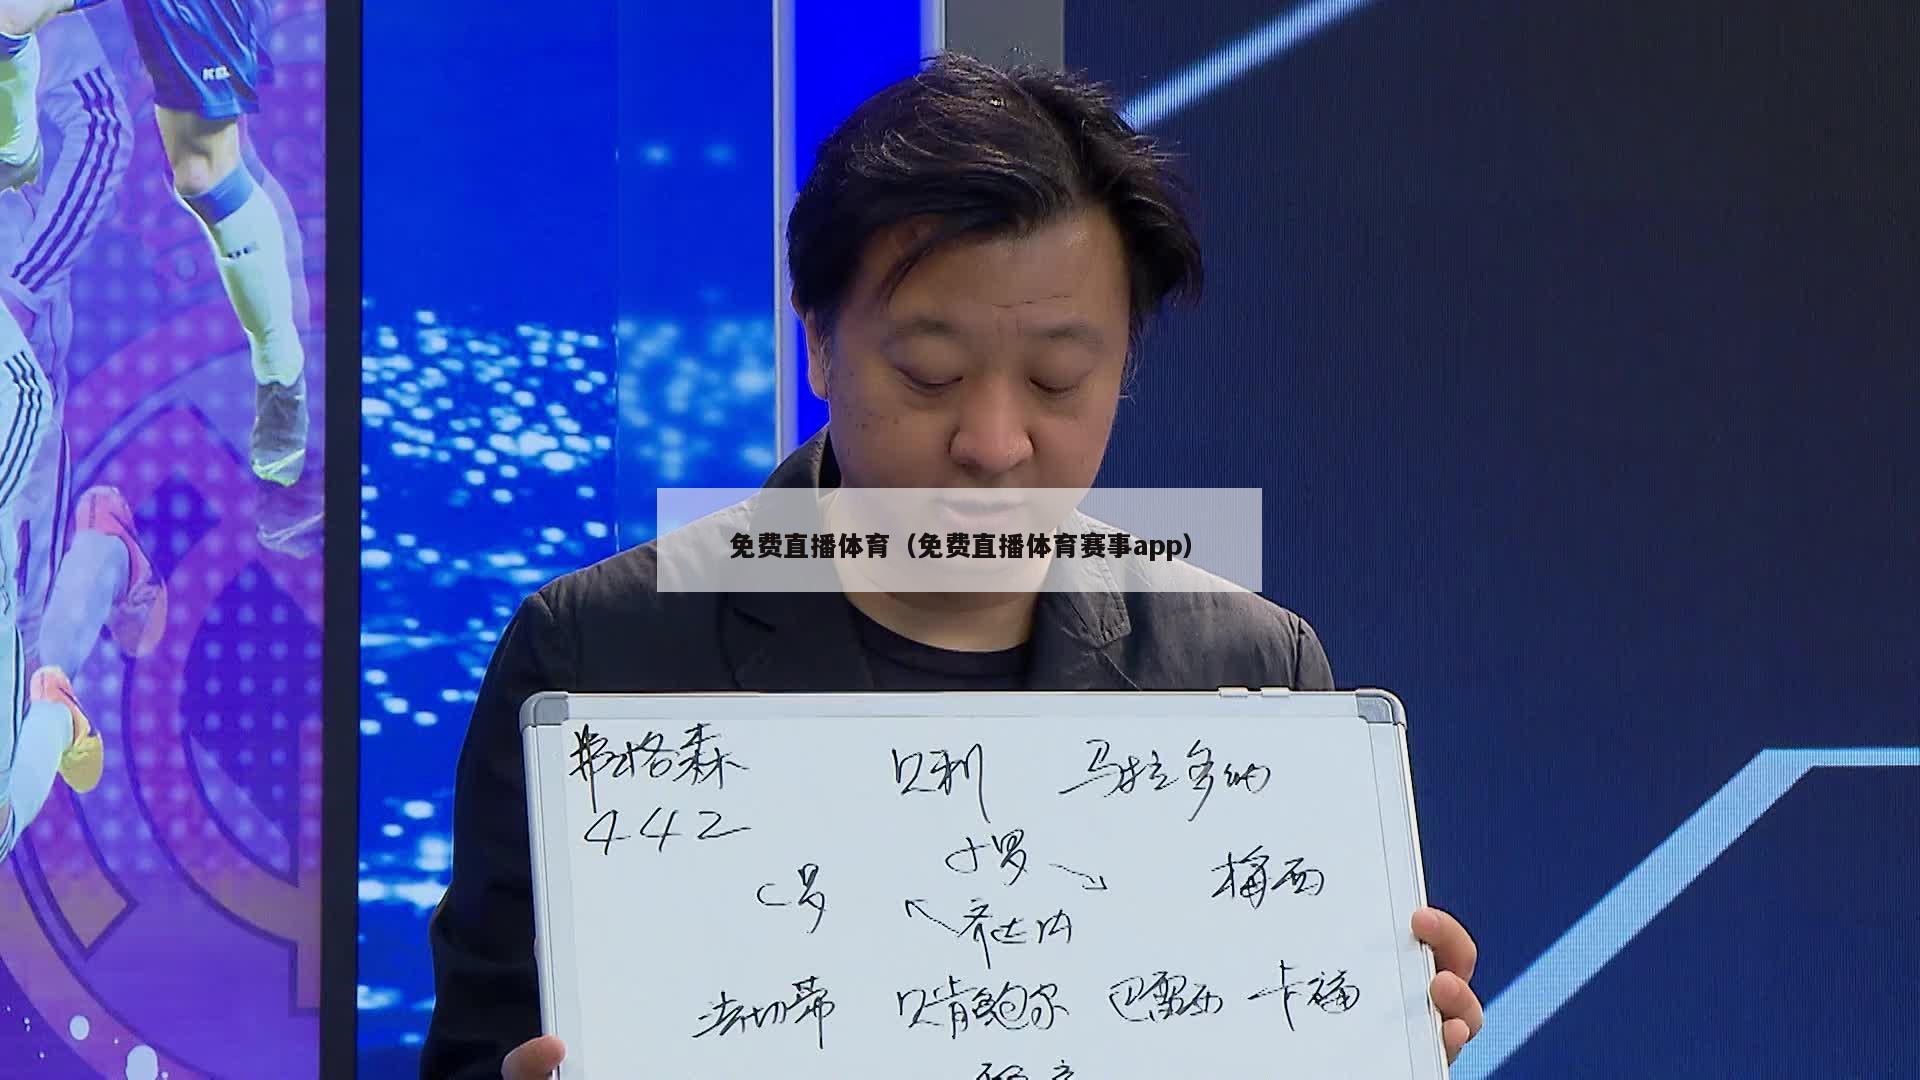 免费直播体育（免费直播体育赛事app）
弗格森 贝利 马拉多纳
442
小罗
C罗 梅西
齐达内
法切蒂 贝肯鲍尔 巴雷西 卡福